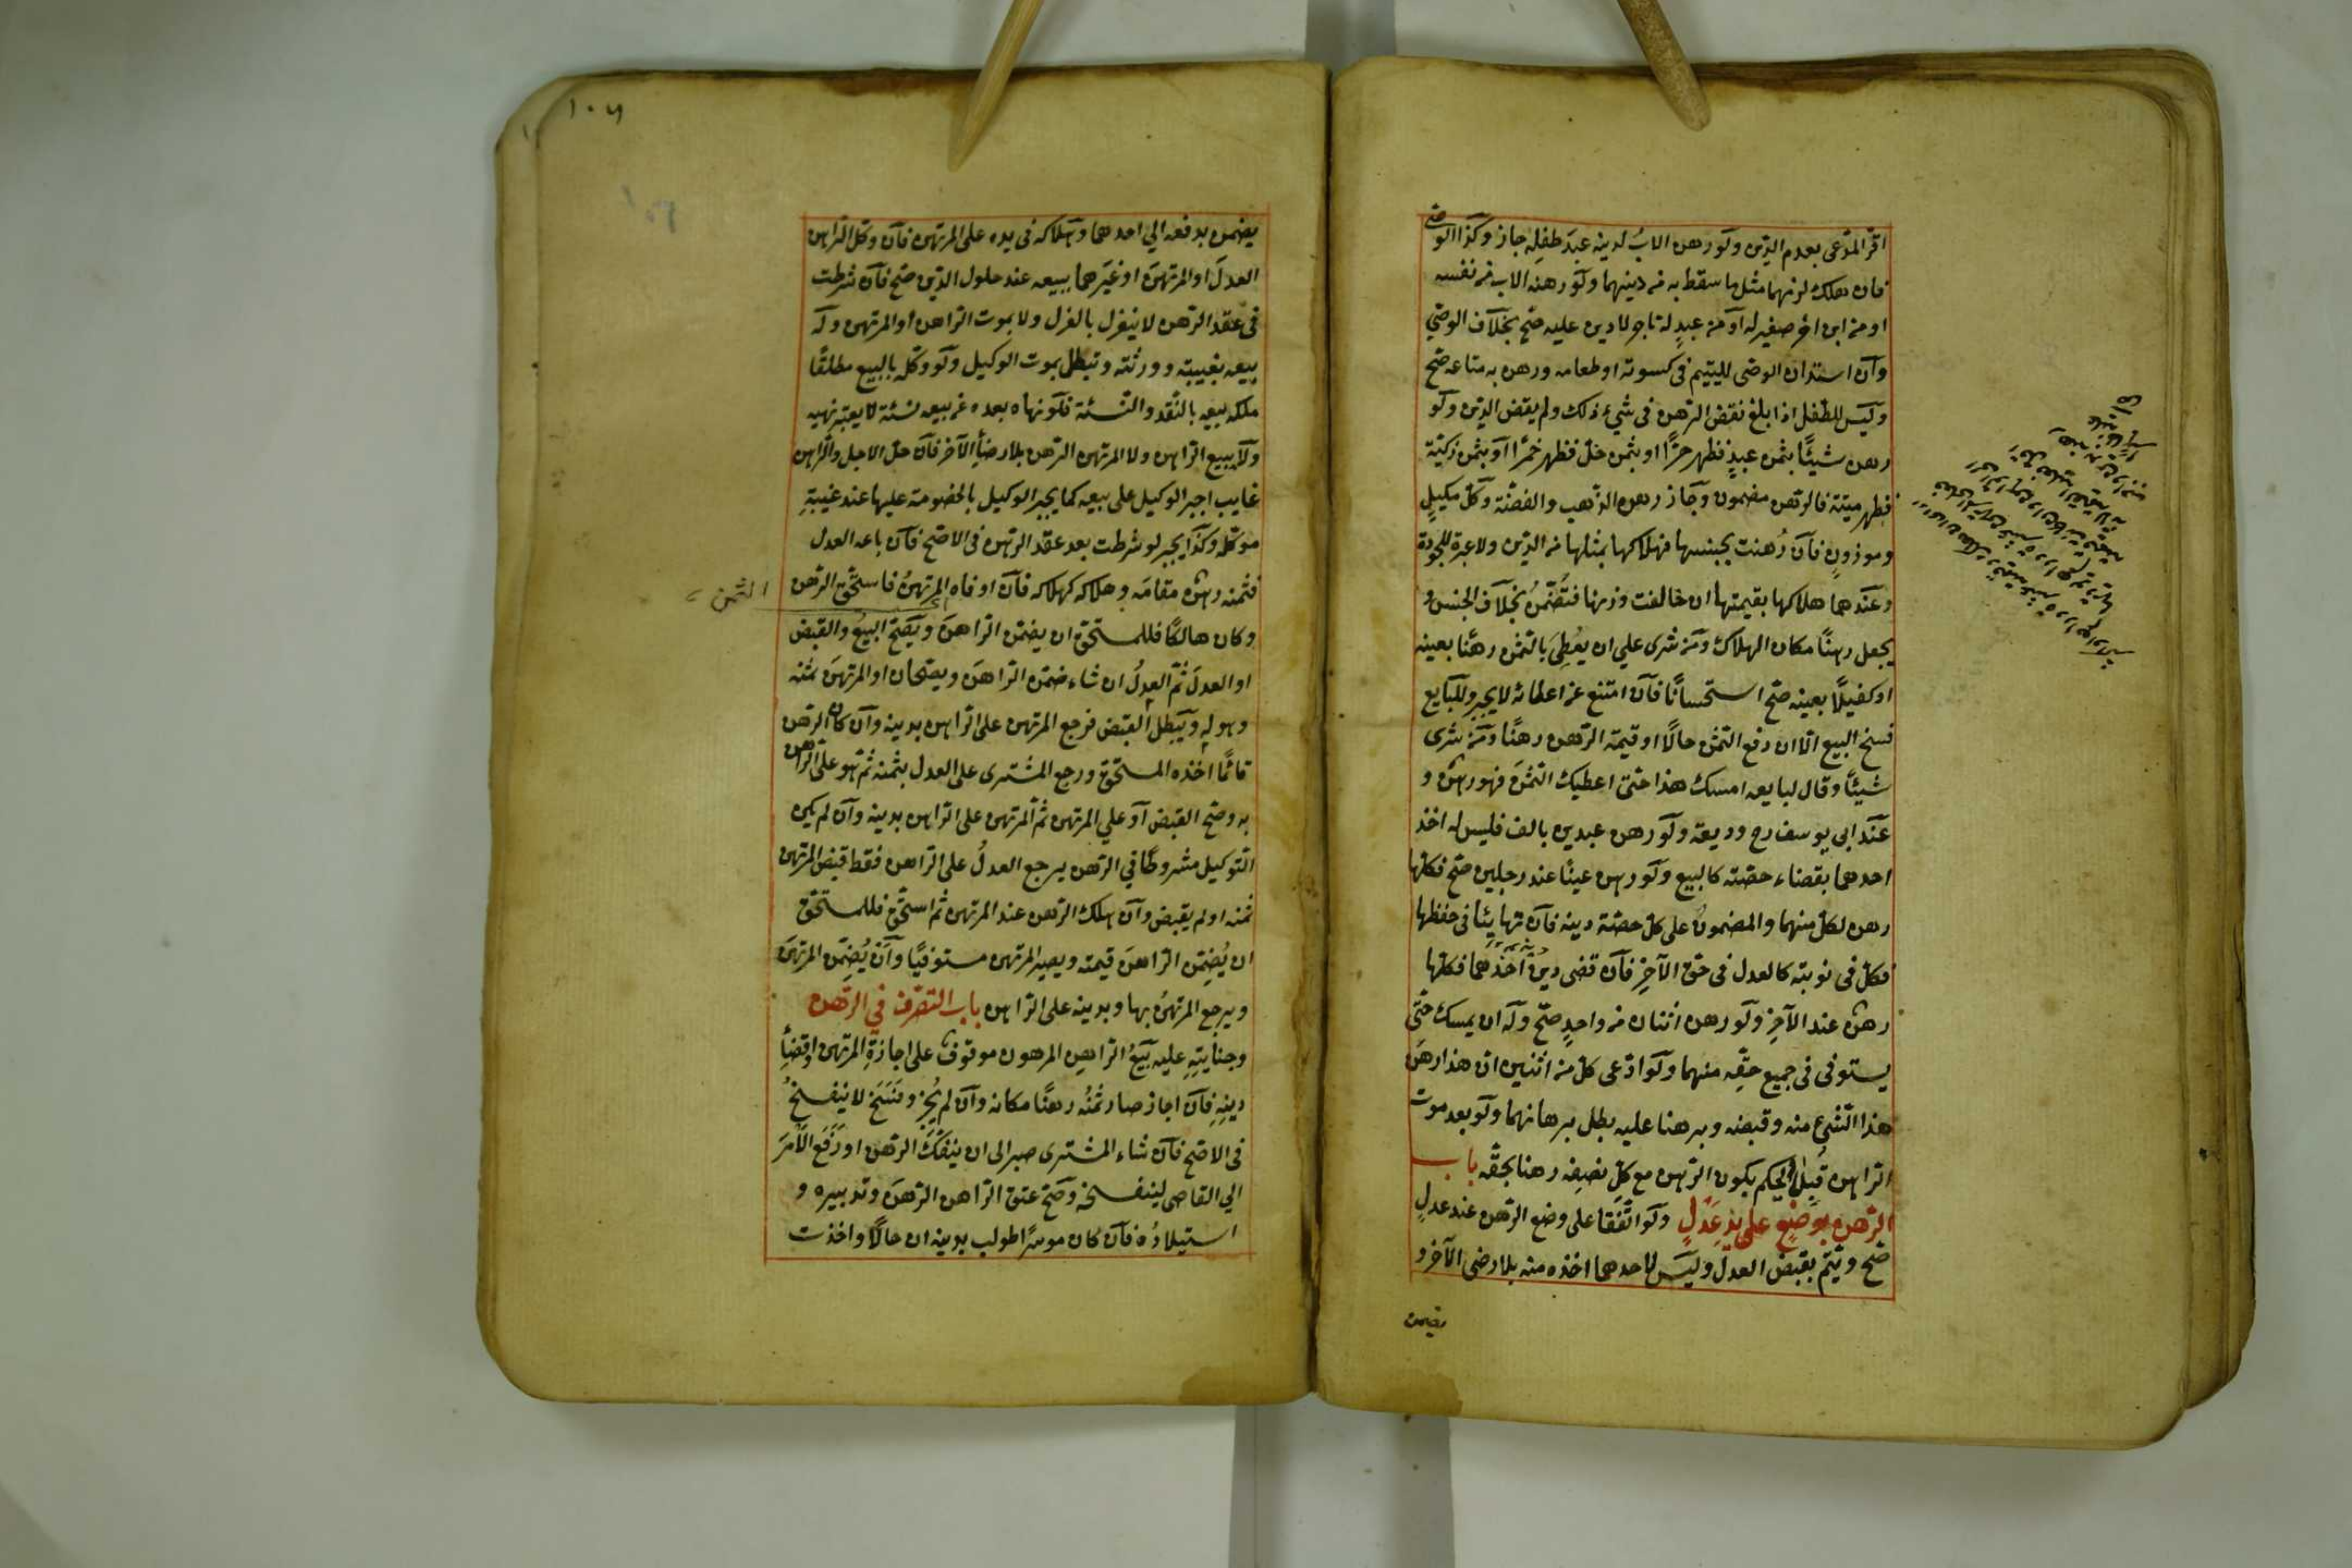 اقرّ المدّعى بعدم الدّين ولو رهن الابُ لدينه عبدَ طفلِه جاز وكذا الوصّى
فان هلك لزمهما مثل ما سقط به من دينهما ولو رهنه الاب من نفسه
او من ابن اخر صغير له او من عبدٍ له تاجر لا دين عليه صحّ بخلاف الوصّي
وان استدان الوصّى لليتيم فى كسوته او طعامه ورهن به متاعه صحّ
وليس للطّفل اذا بلغ نقض الرّهن فى شيء ذلك ولم يقض الدّين ولو
رهن شيئًا بثمن عبدٍ فظهر حرًّا او بثمن خلّ فظهر خمرًا او بثمن زكيّة
فظهر ميتة فالرّهن مضمون وجاز رهن الذّهب والفضّة وكلّ مكيلٍ
وموزونٍ فان رُهنت بجنسها فهلاكها بمثلها من الدّين ولا عبرة للجودة
وعندهما هلاكها بقيمتها ان خالفت وزنها فتضمّنُ بخلاف الجنس و
يجعل رهنًا مكان الهلاك ومن شرى علي ان يعُطِىَ بالثمن رهنًا بعينه
او كفيلًا بعينه صحّ استحسانًا فان امتنع عن اعطائه لا يجبر وللبايع
فسخ البيع الّا ان دفع الثمن حالًا او قيمة الرّهن رهنًا ومن شرى
شيئًا وقال لبايعه امسك هذا حتّى اعطيك الثمنَ فهو رهنٌ و
عند ابى يوسف رح وديعة ولو رهن عبدين بالف فليس له اخذ
احدهما بقضاء حصّته كالبيع ولو رهن عينًا عند رجلين صحّ فكلّها
رهن لكلّ منهما والمضمونُ على كلّ حصّة دينه فان تهايئا فى حفظها
فكلّ فى نوبته كالعدل فى حقّ الآخِرِ فان قضى دينُ احدهما فكلّها
رهنٌ عند الآخِرِ ولو رهن اثنان من واحدٍ صحّ وله ان يمسك حتّى
يستوفى فى جميع حقِّه منهما ولو ادّعى كلّ من اثنين ان هذا رهَن
هذا الشيء منه وقبضه وبرهنا عليه بطل برهانهما ولو بعد موت
الرّاهن قُبِلَ الحكم يكون الرّهن مع كلّ نصِفِه رهنا بحقّه باب
الرّهن يوضع على يد عَدْلٍ ولو اتّفقا على وضع الرّهن عند عدلٍ
صّح ويتمّ بقبض العدل وليس لاحدهما اخذه منه بلا رضى الآخر و
يضمن
١٠٦
يضمن بدفعه الي احدهما وهلاكه فى يده على المرتهن فان وكّل الرّاهن
العدلَ او المرتهنَ او غيَرهما ببيعه عند حلول الدّين صحّ فان شرطت
فى عقد الرّهن لا ينعزل بالعزل ولا بموت الرّاهن او المرتهن وله
بيعه بغيبته وورثته وتبطل بموت الوكيل ولو وكّله بالبيع مطلقًا
ملكه بيعه بالنّقد والنّسئة فلو نهاه بعده عن بيعه نسئة لا يعتبر نهيه
ولا يبيع الرّاهن ولا المرتهن الرّهن بلا رضأ الآخر فان حلّ الاجل والرّاهن
غايب اجبر الوكيل على بيعه كما يجبر الوكيل بالخصومة عليها عند غيبةِ
موكّله وكذا يجبر لو شرطت بعد عقد الرّهن فى الاصّح فان باعه العدل
فثمنه رهنٌ مقامَه وهلاكه كهلاكه فان اوفاه المرتهنُ فاستحّق الرّهن
الثمن
وكان هالكًا فللمستحّق ان يضمّن الرّاهنَ ويصّح البيعُ والقبض
او العدلَ ثمّ العدلُ ان شاء ضمّن الرّاهنَ ويصّحان او المرتهنَ ثمنه
وهو له ويبطل القبض فرجع المرتهن على الرّاهن بدينه وان كان الرّهن
قائمًا اخذه المستحّق ورجع المشترى على العدل بثمنه ثمّ هو على الرّاهن
به وصّح القبض او علي المرتهن ثمّ المرتهن على الرّاهن بدينه وان لم يكن
التّوكيل مشروطًا في الرّهن يرجع العدلُ على الرّاهن فقط قبض المرتهن
ثمنه او لم يقبض وان هلك الرّهن عند المرتهن ثمّ استحّق فللمستحّق
ان يُضمِّن الرّاهنَ قيمته ويصير المرتهن مستوفيًا وان يُضمِّن المرتهنَ
ويرجع المرتهنُ بها وبدينه على الرّاهن باب التصّرف في الرّهن
وجنايتِهِ عليه بَيعُ الرّاهنِ المرهون موقوفٌ على اجازةِ المرتهن او قضأِ
دينِه فان اجاز صار ثمنُه رهنًا مكانه وان لم يُجزْ وفَسَخَ لا ينفسخُ
فى الاصّح فان شاء المشترى صبر الى ان ينفكّ الرّهن او رَفَعَ الاَمرَ
الي القاضى لينفسخه وصّح عتق الرّاهن الرّهنَ وتدبيره و
استيلادُه فان كان موسرًا طولب بدينه ان حالًا واخذت